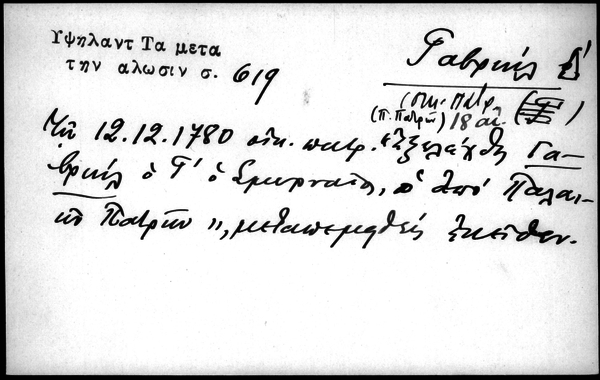 Υψηλαντ Τα μετα
την αλωσιν σ. 619
Γαβριήλ Δ'
(οικ. πατρ.
(Π. Πατρῶν) 18 αἰ.
Τῇ 12.12.1780 οἰκ. πατρ. ἐξελέγη Γα-
βριήλ ὁ Γ' ὁ Σμυρναῖος, ὁ ἀπό Παλαι-
ῶν Πατρῶν", μεταπεμφθείς ἐκεῖθεν.